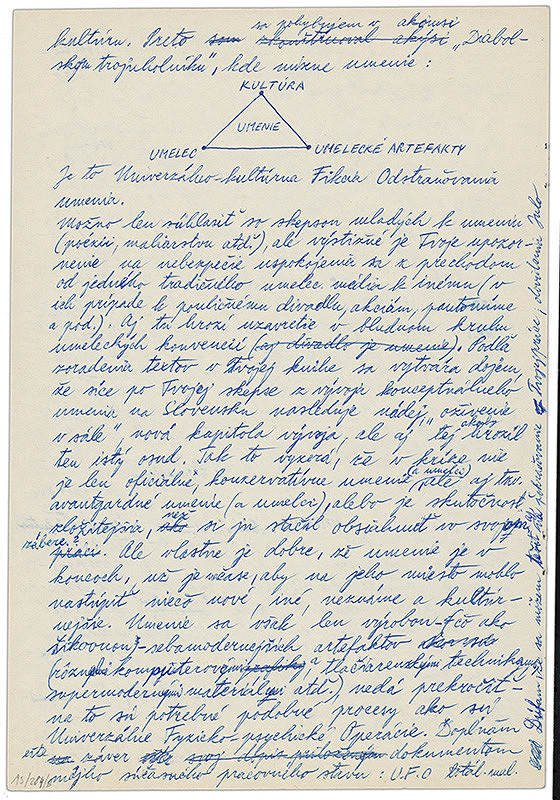 sa pohybujem v akomsi
kultúru. Preto som skonštruoval akýsi „Diabol-
skom trojuholníku“, kde mizne umenie:
KULTÚRA
UMENIE
UMELEC
UMELECKÉ ARTEFAKTY
Je to Univerzálno-kultúrna Fikcia Odstraňovania
umenia.
Možno len súhlasiť so skepsou mladých k umeniu
(poézii, maliarstvu atď.), ale výstižné je Tvoje upozor-
nenie na nebezpečie uspokojenia sa z prechodom
od jedného tradičného umelec. média k inému (v
ich prípade k pouličnému divadlu, akciám, pantomíme
a pod.). Aj tu hrozí uzavretie v bludnom kruhu
umeleckých konvencií (aj divadlo je umenie). Podľa
zoradenia textov v Tvojej knihe sa vytvára dojem,
že síce po Tvojej skepse z vývoja konceptuálneho
umenia na Slovensku nasleduje nádej „oživenie
v sále“, nová kapitola vývoja, ale aj tej akoby hrozil
ten istý osud. Tak to vyzerá, že v kríze nie
je len oficiálne, konzervatívne umenie (a umelci), ale aj tzv.
avantgardné umenie (a umelci), alebo je skutočnosť
zložitejšia, než si ju stačil obsiahnuť vo svojom
zábere?
práci. Ale vlastne je dobre, že umenie je v
koncoch, už je načase, aby na jeho miesto mohlo
nastúpiť niečo nové, iné, neznáme a kultúr-
nejšie. Umenie sa však len výrobou čo ako
šikovnou sebamodernejších artefaktov
(rôznymi kompjuterovými, tlačiarenskými technikami,
supermodernými materiálmi atď.) nedá prekročiť -
na to sú potrebné podobné procesy ako sú
Univerzálne Fyzicko-psychické Operácie. Dopĺňam
ešte
na záver svoj dopis priloženým dokumentom
môjho súčasného pracovného stavu: U.F.O total. mal.
13/284/8
Dúfam, že sa môžem tešiť na pokračovanie Tvojej práce, dovidenia Julo